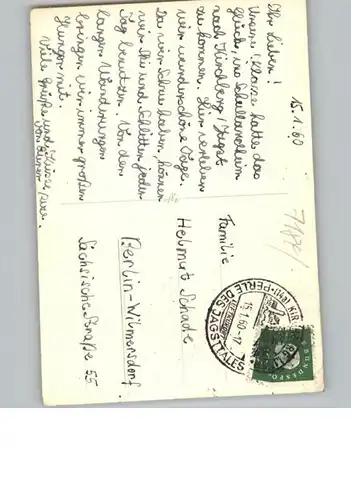 15.1.60
Ihr Lieben!
Unsere Klasse hatte das
Glück, ins Schullandheim
nach Kirchberg/Jagst
zu kommen. Hier verleben
wir wunderschöne Tage.
Da wir Schnee haben, können
wir Ski und Schlitten jeden
Tag benutzen. Von den
langen Wanderungen
bringen wir immer großen
Hunger mit.
Viele Grüße und Küsse
von Eurer
Familie
Helmut Schade
Berlin-Wilmersdorf
Sächsische Straße 55
PERLE DES JAGSTTALES
15.1.60-17